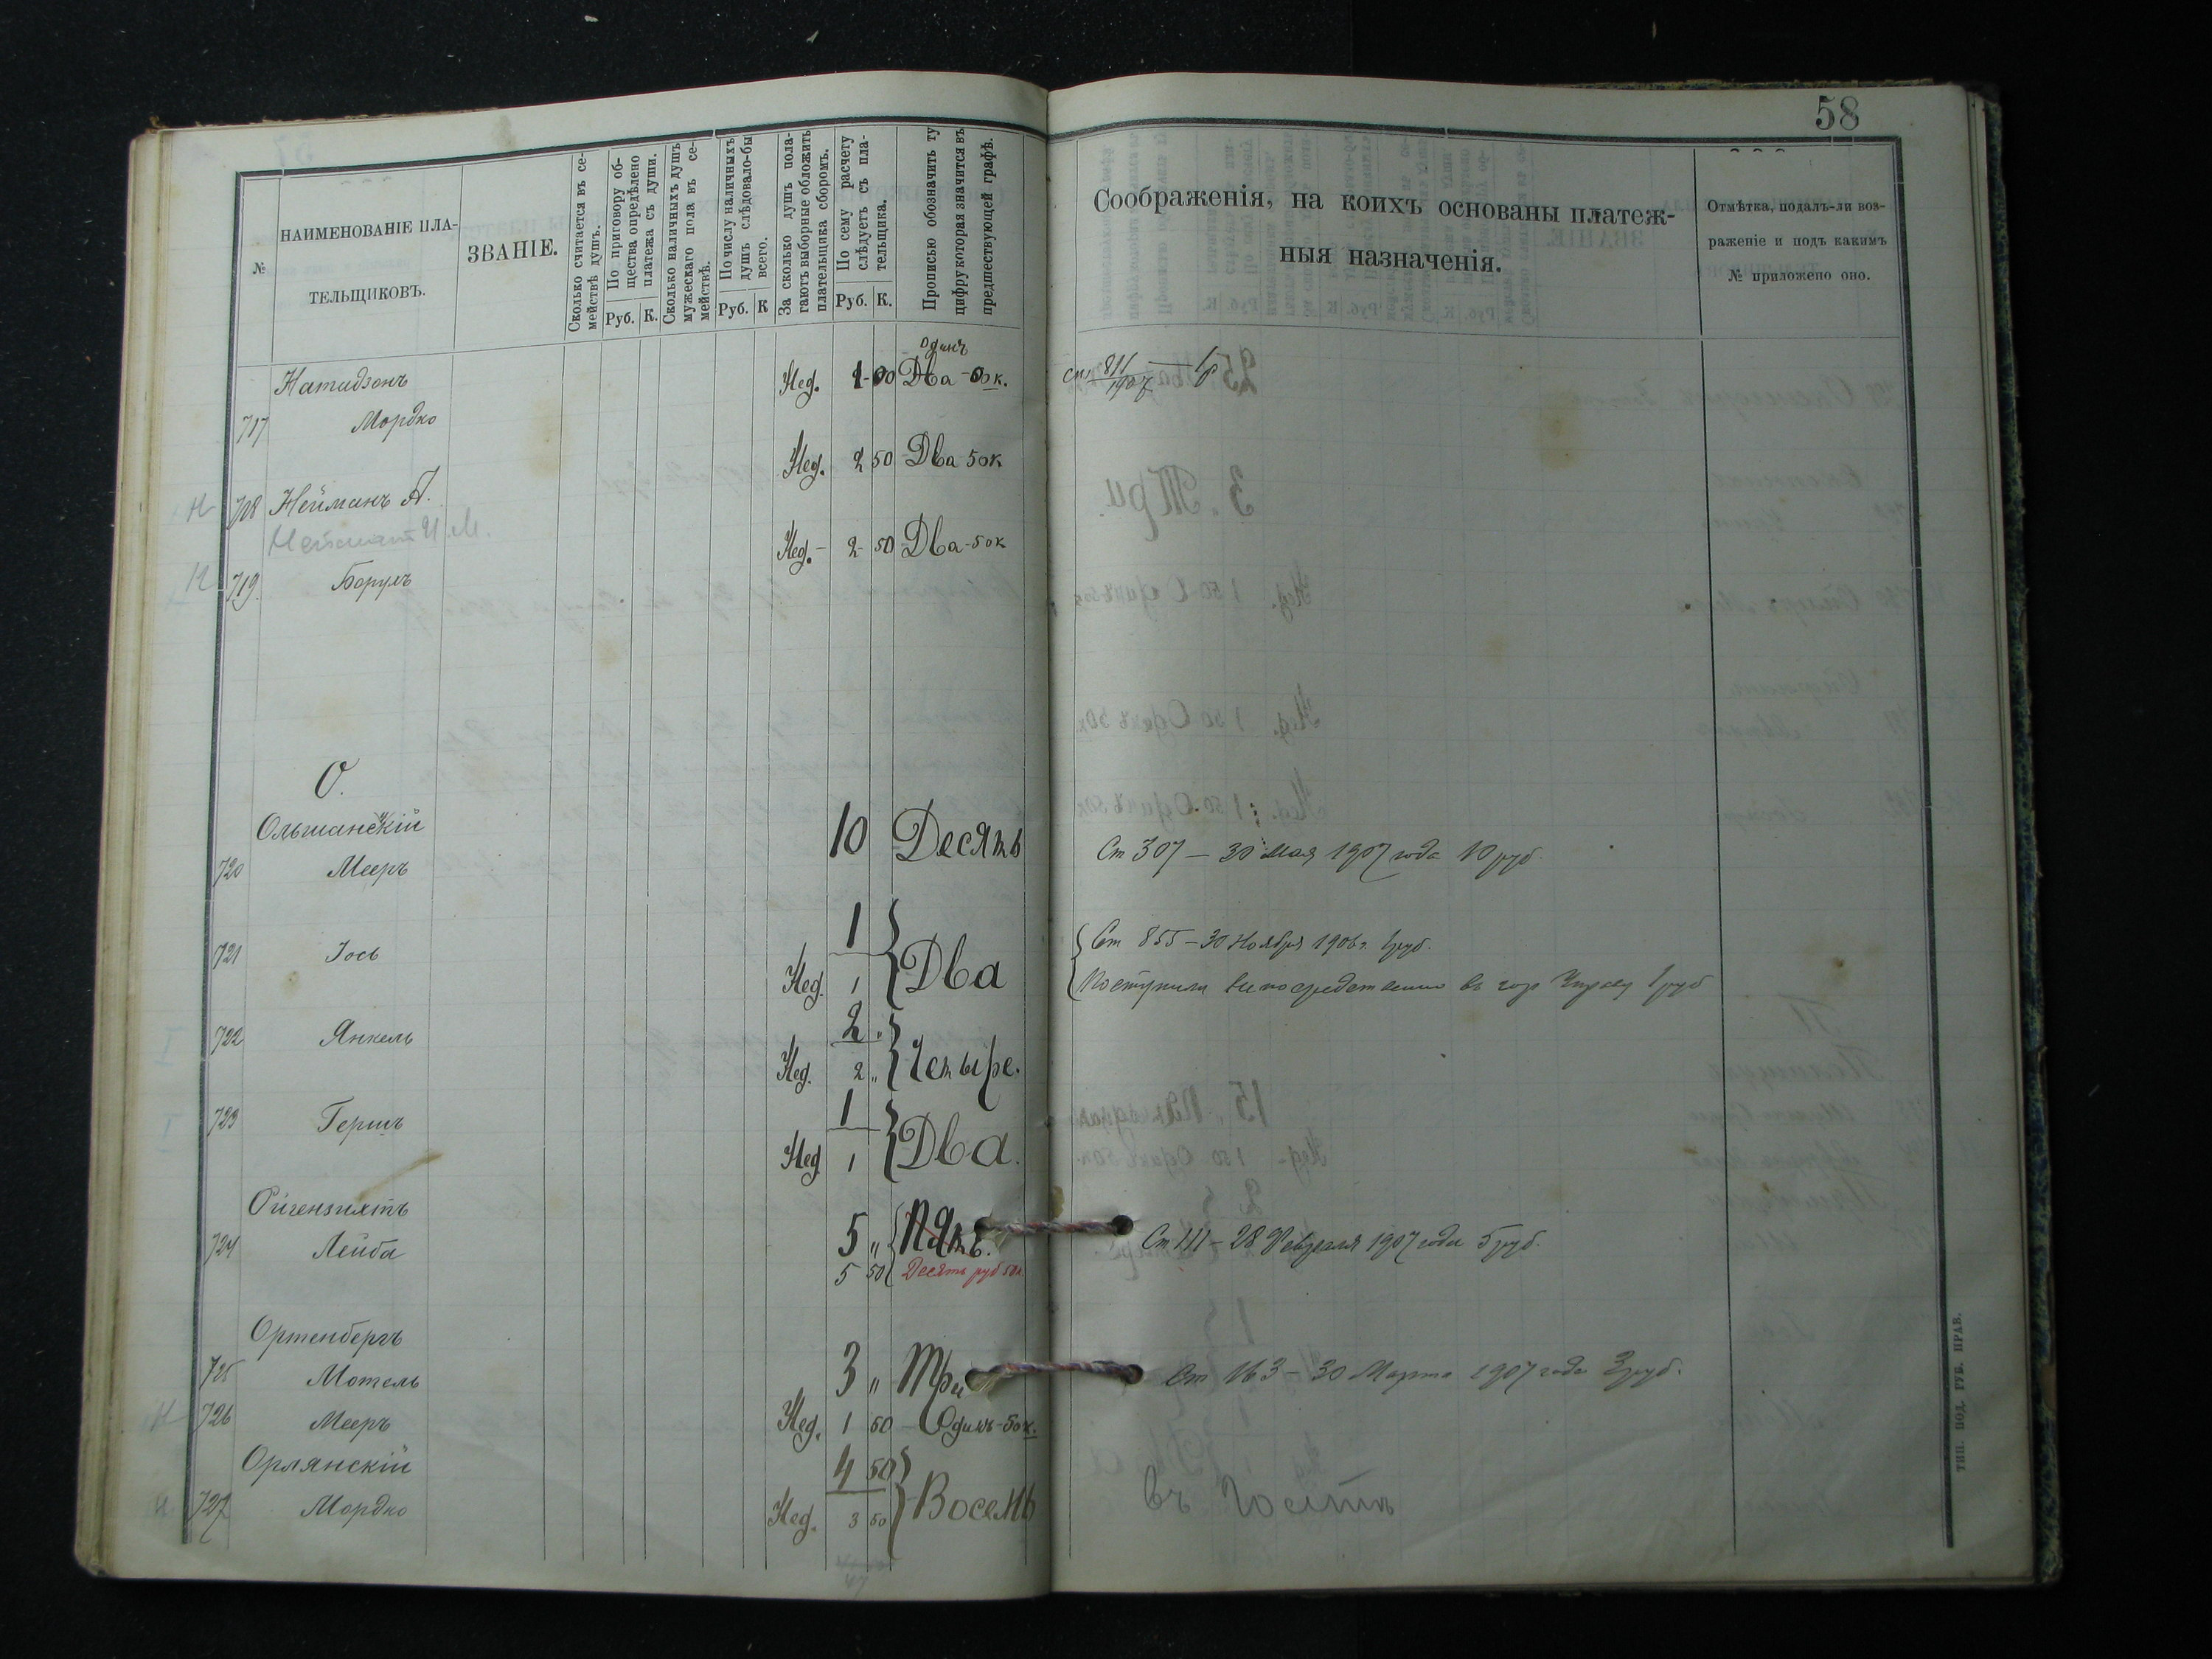 58
№
НАИМЕНОВАНІЕ ПЛА-
ТЕЛЬЩИКОВЪ.
ЗВАНІЕ.
Сколько считается въ се-
мействѣ душъ.
По приговору об-
щества опредѣлено
платежа съ души.
Руб. К.
Сколько наличныхъ душъ
мужескаго пола въ се-
мействѣ.
По числу наличныхъ
душъ слѣдовало-бы
всего.
Руб. К
За сколько душъ пола-
гаютъ выборные обложить
плательщика сборомъ.
По сему расчету
слѣдуетъ съ пла-
тельщика.
Руб. К.
Прописью обозначить ту
цифру которая значится въ
предшествующей графѣ.
Соображенія, на коихъ основаны платеж-
ныя назначенія.
Отмѣтка, подалъ-ли воз-
раженіе и подъ какимъ
№ приложено оно.
одинъ
Натидзонъ Нед. 1 00 Два 00к. ст 811 1907 1р
717 Мордко
Нед. 2 50 Два 50к
Н 718 Нейманъ А.
И. М.
Нед. - 2 50 Два - 50к
Н 719. Борухъ
О.
Ольшанскій
720 Мееръ 10 Десять Ст 307 - 30 Мая 1907 года 10 руб.
1
721 Іось Нед. 1 Два Ст 855 - 30 Ноября 1906 г. 1руб.
Поступили непосредственно въ гор Управу 1руб
2 "
722 Янкель Нед. 2 " Четыре.
1
723 Гершъ Нед 1 Два.
Ойгензихтъ
724 Лейба 5 " Пять. Ст 111 - 28 Февраля 1907 года 5 руб.
5 50 Десять руб 50к
Ортенбергъ
725 Мотель 3 " Три Ст 163 - 30 Марта 1907 года 3руб.
Н 726 Мееръ Нед. 1 50 - Одинъ - 50к.
Орлянскій 4 50
Н 727 Мордко Нед. 3 50 Восемь
ТИП. ПОД. ГУБ. ПРАВ.